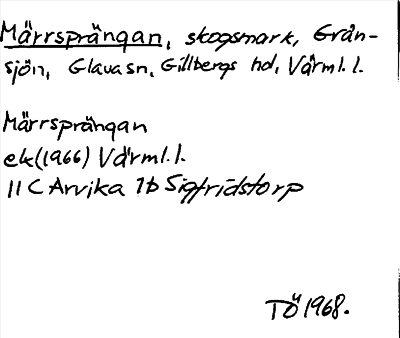 Märrsprängan, skogsmark, Grån-
sjön, Glava sn, Gillbergs hd, Värml. l.
Märrsprängan
ek(1966) Värml. l.
11 C Arvika 7b Sigfridstorp
TÖ 1968.